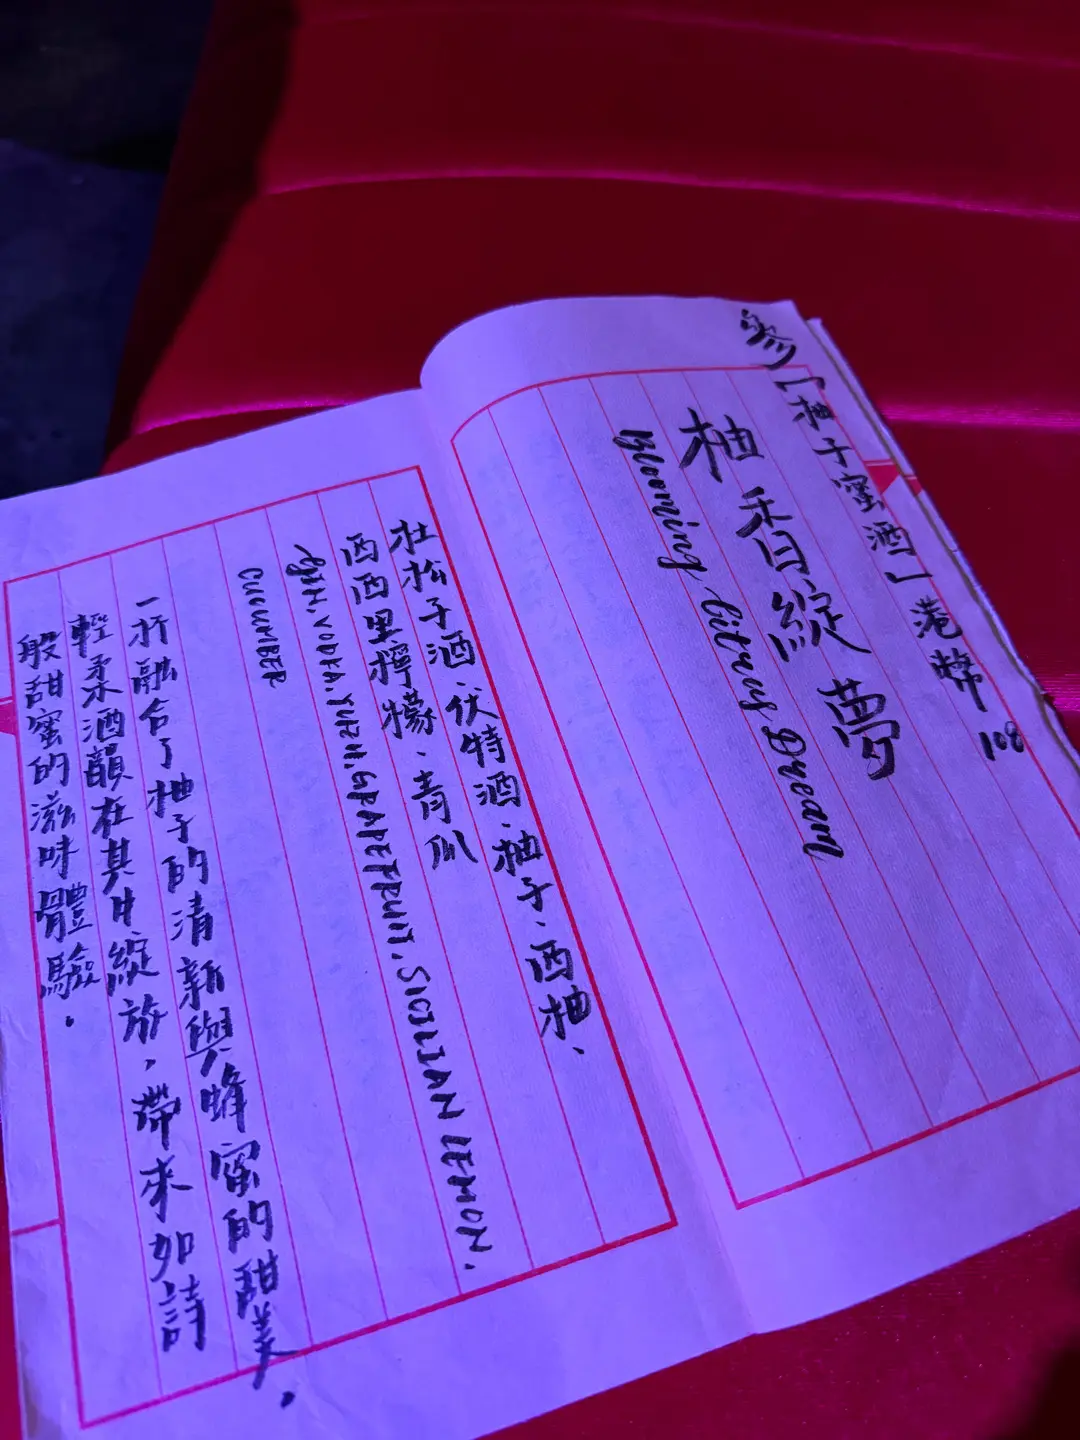 參「柚子蜜酒」港幣108
柚香綻夢
Blooming Citrus Dream
杜松子酒、伏特酒、柚子、西柚、
西西里檸檬、青瓜
GIN. VODKA. YUZU. GRAPEFRUIT. SICILIAN LEMON.
CUCUMBER
一杯融合了柚子的清新與蜂蜜的甜美,
輕柔酒韻在其中綻放,帶來如詩
般甜蜜的滋味體驗.